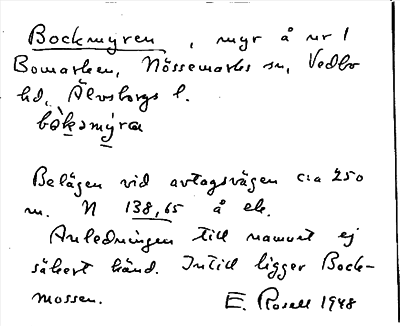 Bockmyren, myr å nr 1
Bomarken, Nössemarks sn, Vedbo
hd, Älvsborgs l.
bòksmýra
Belägen vid avtagsvägen c:a 250
m. N 138,65 å ek.
Anledningen till namnet ej
säkert känd. Intill ligger Bock-
mossen. E. Rosell 1948